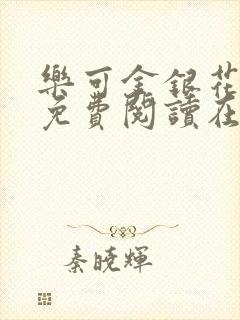 樂可金銀花
免費閱讀在
秦曉輝